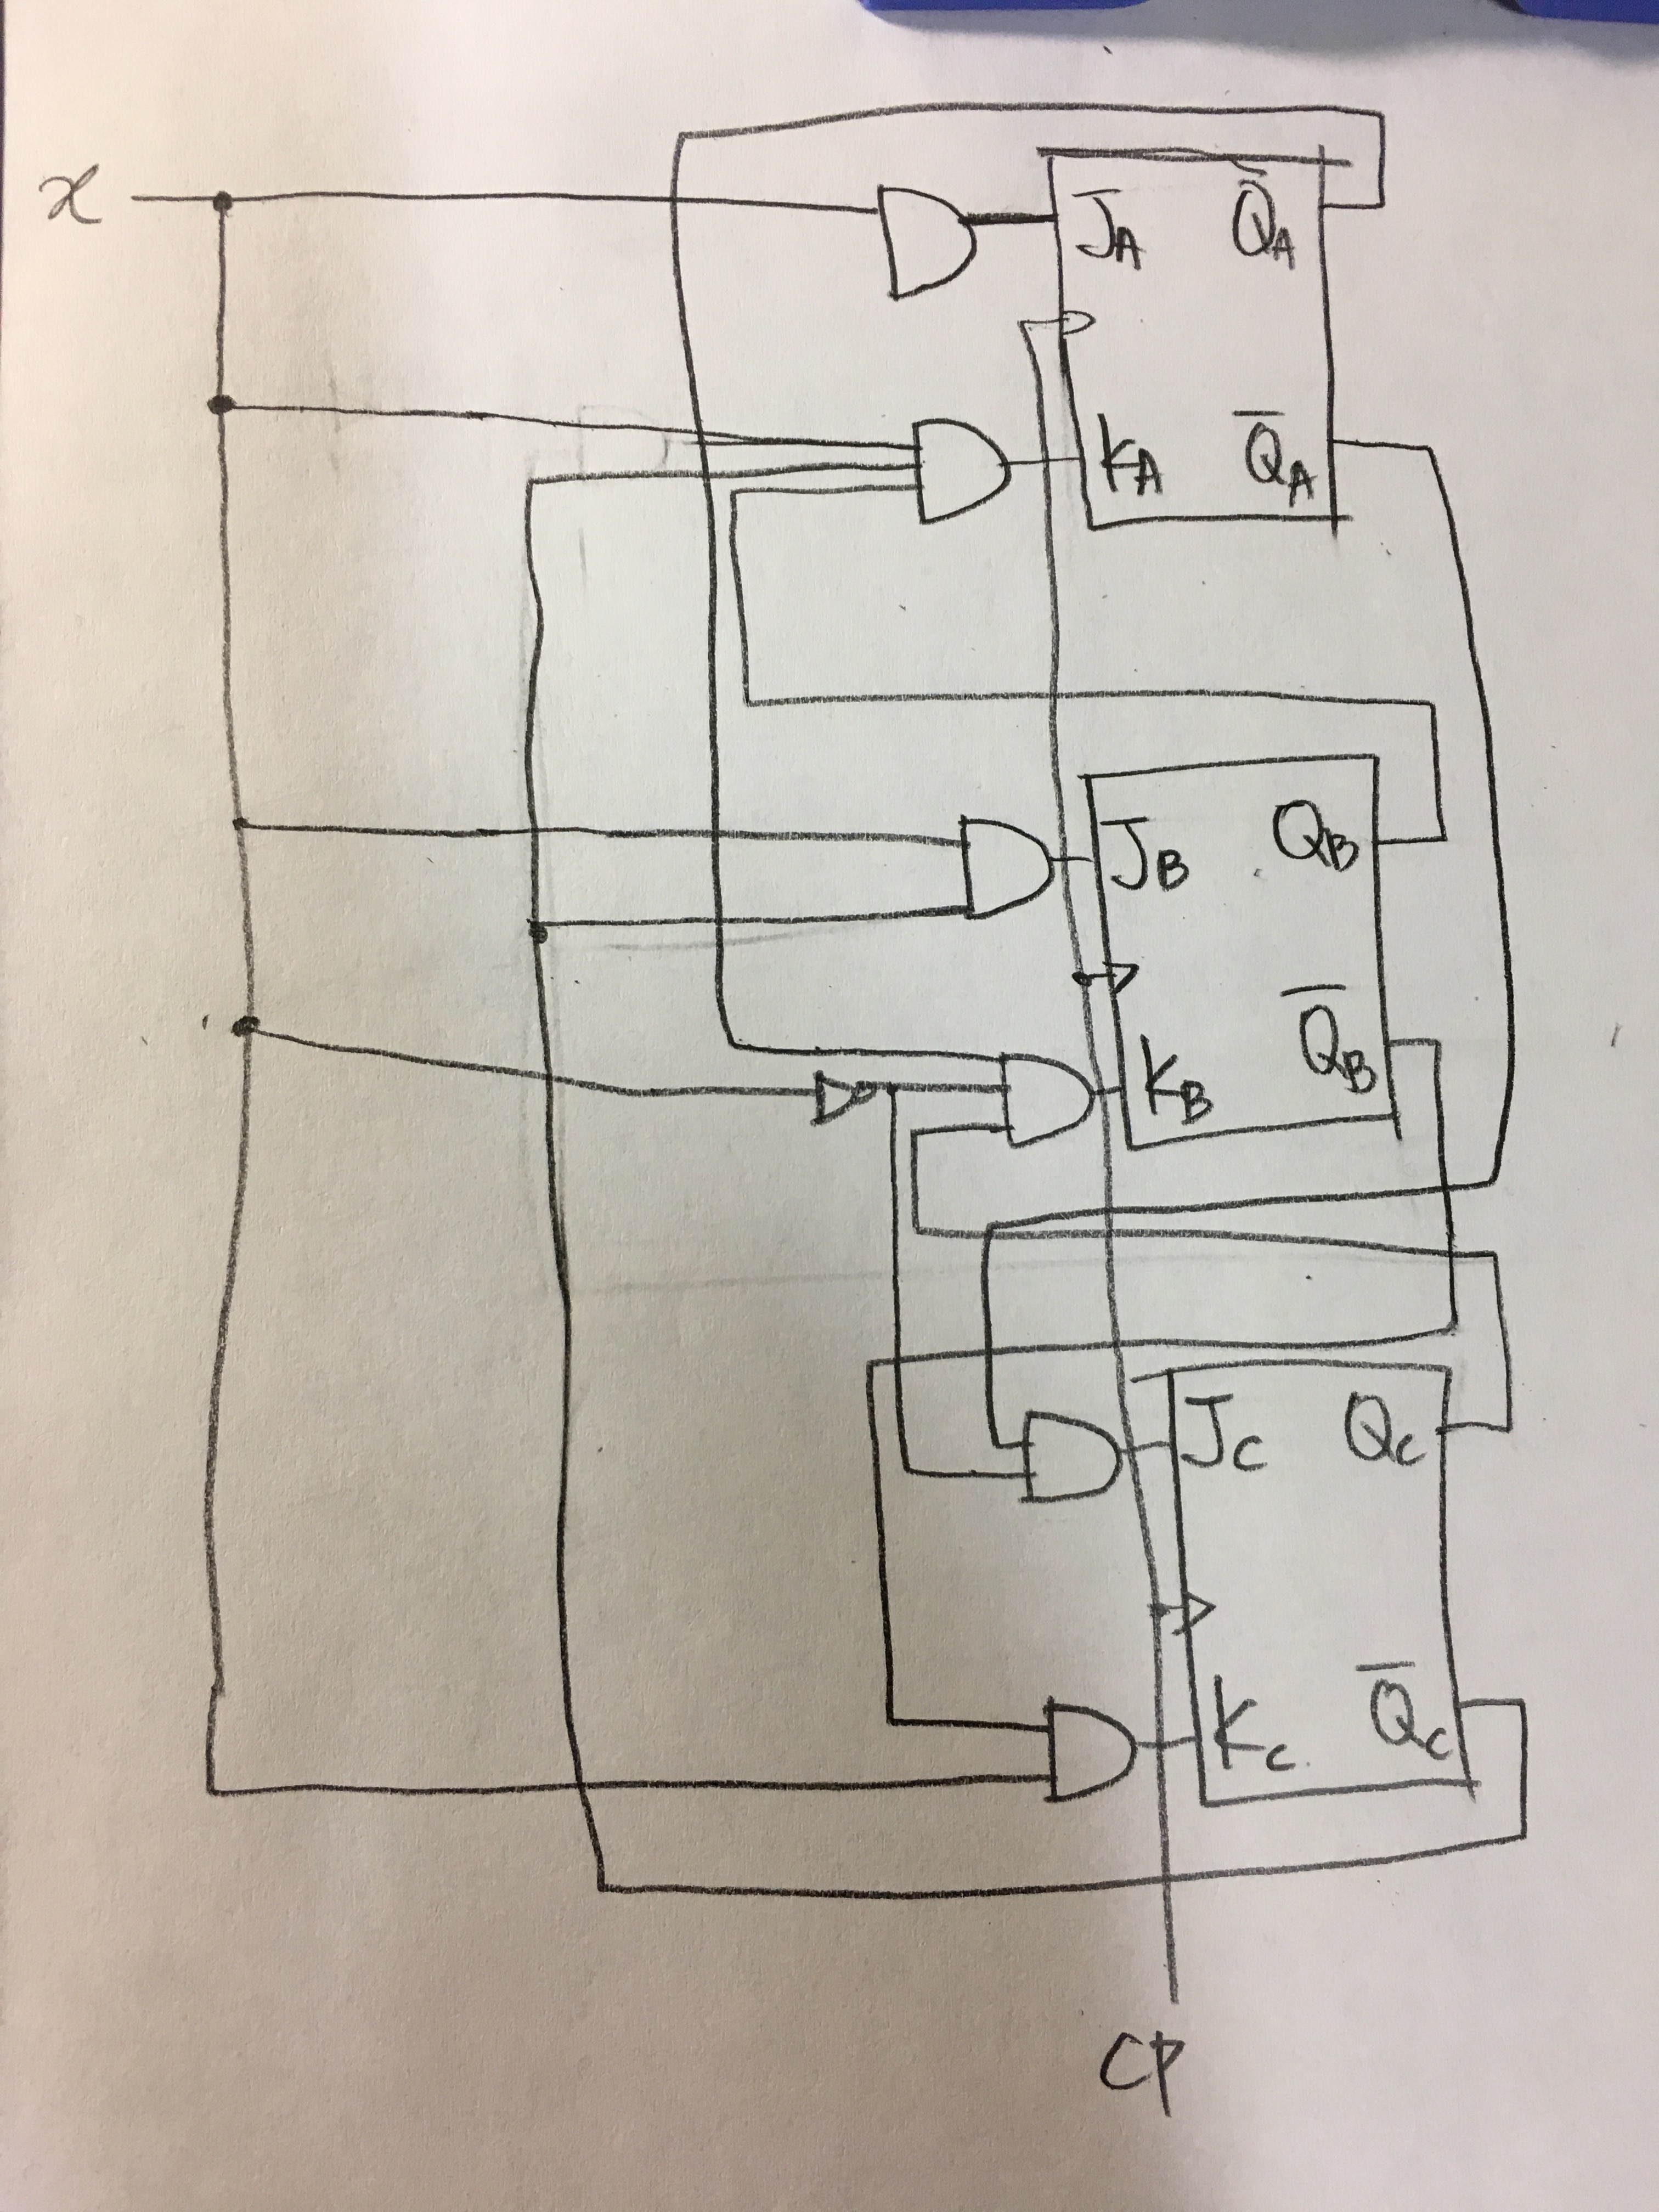 x
J_A Q̄_A
K_A Q̄_A
J_B Q_B
K_B Q̄_B
J_C Q_C
K_C Q̄_C
CP